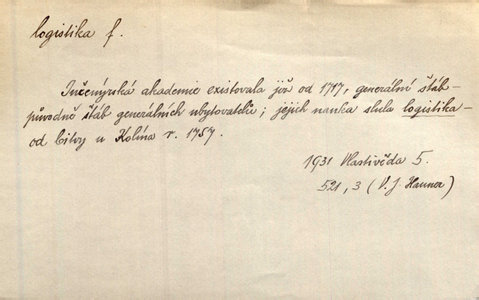 logistika f.
Inženýrská akademie existovala již od 1717, generální štáb -
původně štáb generálních ubytovatelů; jejich nauka slula logistika -
od bitvy u Kolína r. 1757.
1931 Vlastivěda 5.
521, 3 (V. J. Hauner)